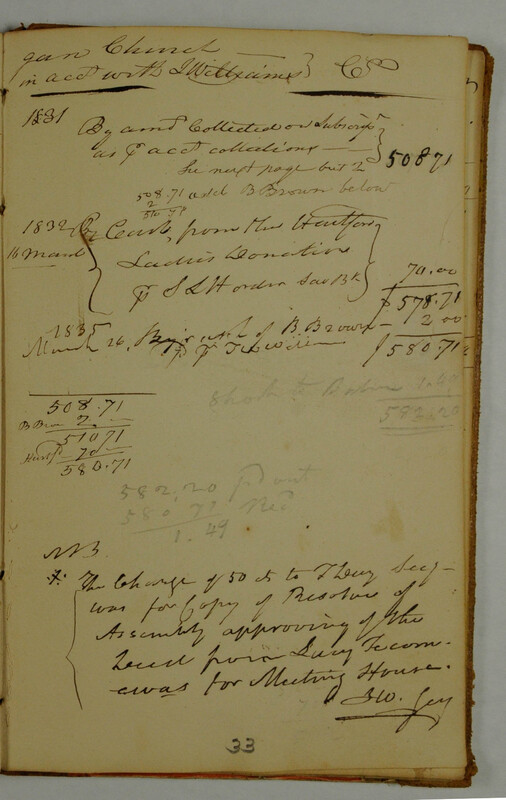 gan Church
in acct with J Williams } Cr
1831
By amt Collected on Subscript
as pr acct collections — } 508 71
See next page but 2
508.71 add B Brown below
2
510 71
1832 By Cash, from the Hartford
16 March Ladies Donation
pr S L H order Sav Bk 70.00
$ 578.71
1835
March 26, By of B. Brown — 2 00
pr T. Williams $ 580.71
Short to Balance 1.49
582.20
508.71
B Brn 2.
510 71
Hartfd 70
580.71
582.20 pd out
580 71 Recd
1.49
NB
The Charge of 50 cts to T Day Secy
was for Copy of Resolve of
Assembly approving of the
Deed from Lucy Tecom-
ewas for Meeting House.
33